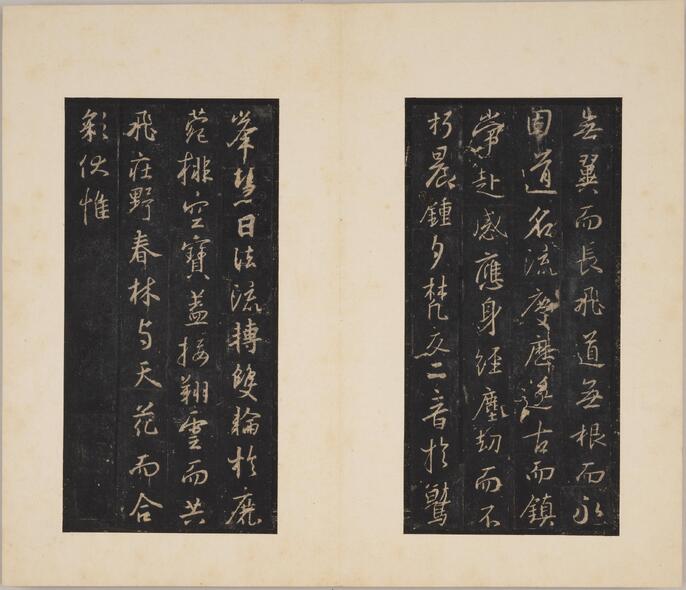 無翼而長飛道無根而永
固道名流慶歷遂古而鎮
常赴感應身經塵劫而不
朽晨鍾夕梵交二音於鷲
峯慧日法流轉雙輪於鹿
菀排空寶蓋接翔雲而共
飛莊野春林與天花而合
彩伏惟